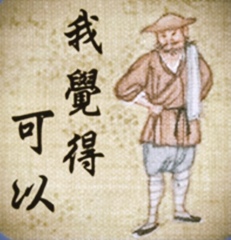 我覺得
可以